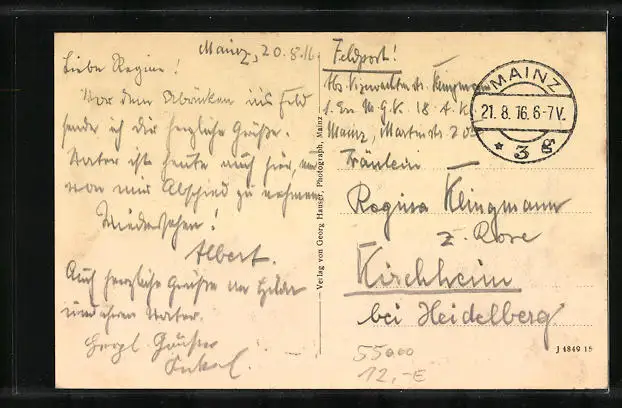 Mainz, 20.8.16
Liebe Regine!
Vor dem Abrücken ins Feld
sende ich dir herzliche Grüße.
Vater ist heute auch hier, um
von mir Abschied zu nehmen.
Wiedersehen!
Albert.
Auch herzliche Grüße an Hilda
und ihren Vater.
Herzl. Grüße
Verlag von Georg Hauser, Photograph, Mainz
Feldpost!
Abs. Vizewachtmstr. Klingmann
1. Ers. M.G.K. 18. A.K.
Mainz, Martinstr.
MAINZ
21.8.16.6-7V.
* 3 g
Fräulein
Regina Klingmann
z. Rose
Kirchheim
bei Heidelberg
55000
12,-E
J 4849 15